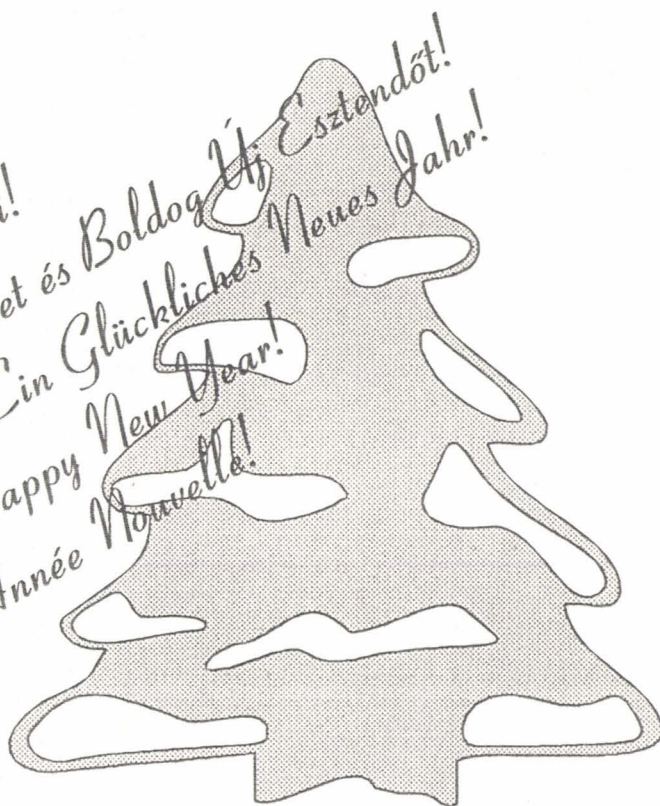 et és Boldog Új Esztendőt!
Ein Glückliches Neues Jahr!
appy New Year!
Année Nouvelle!